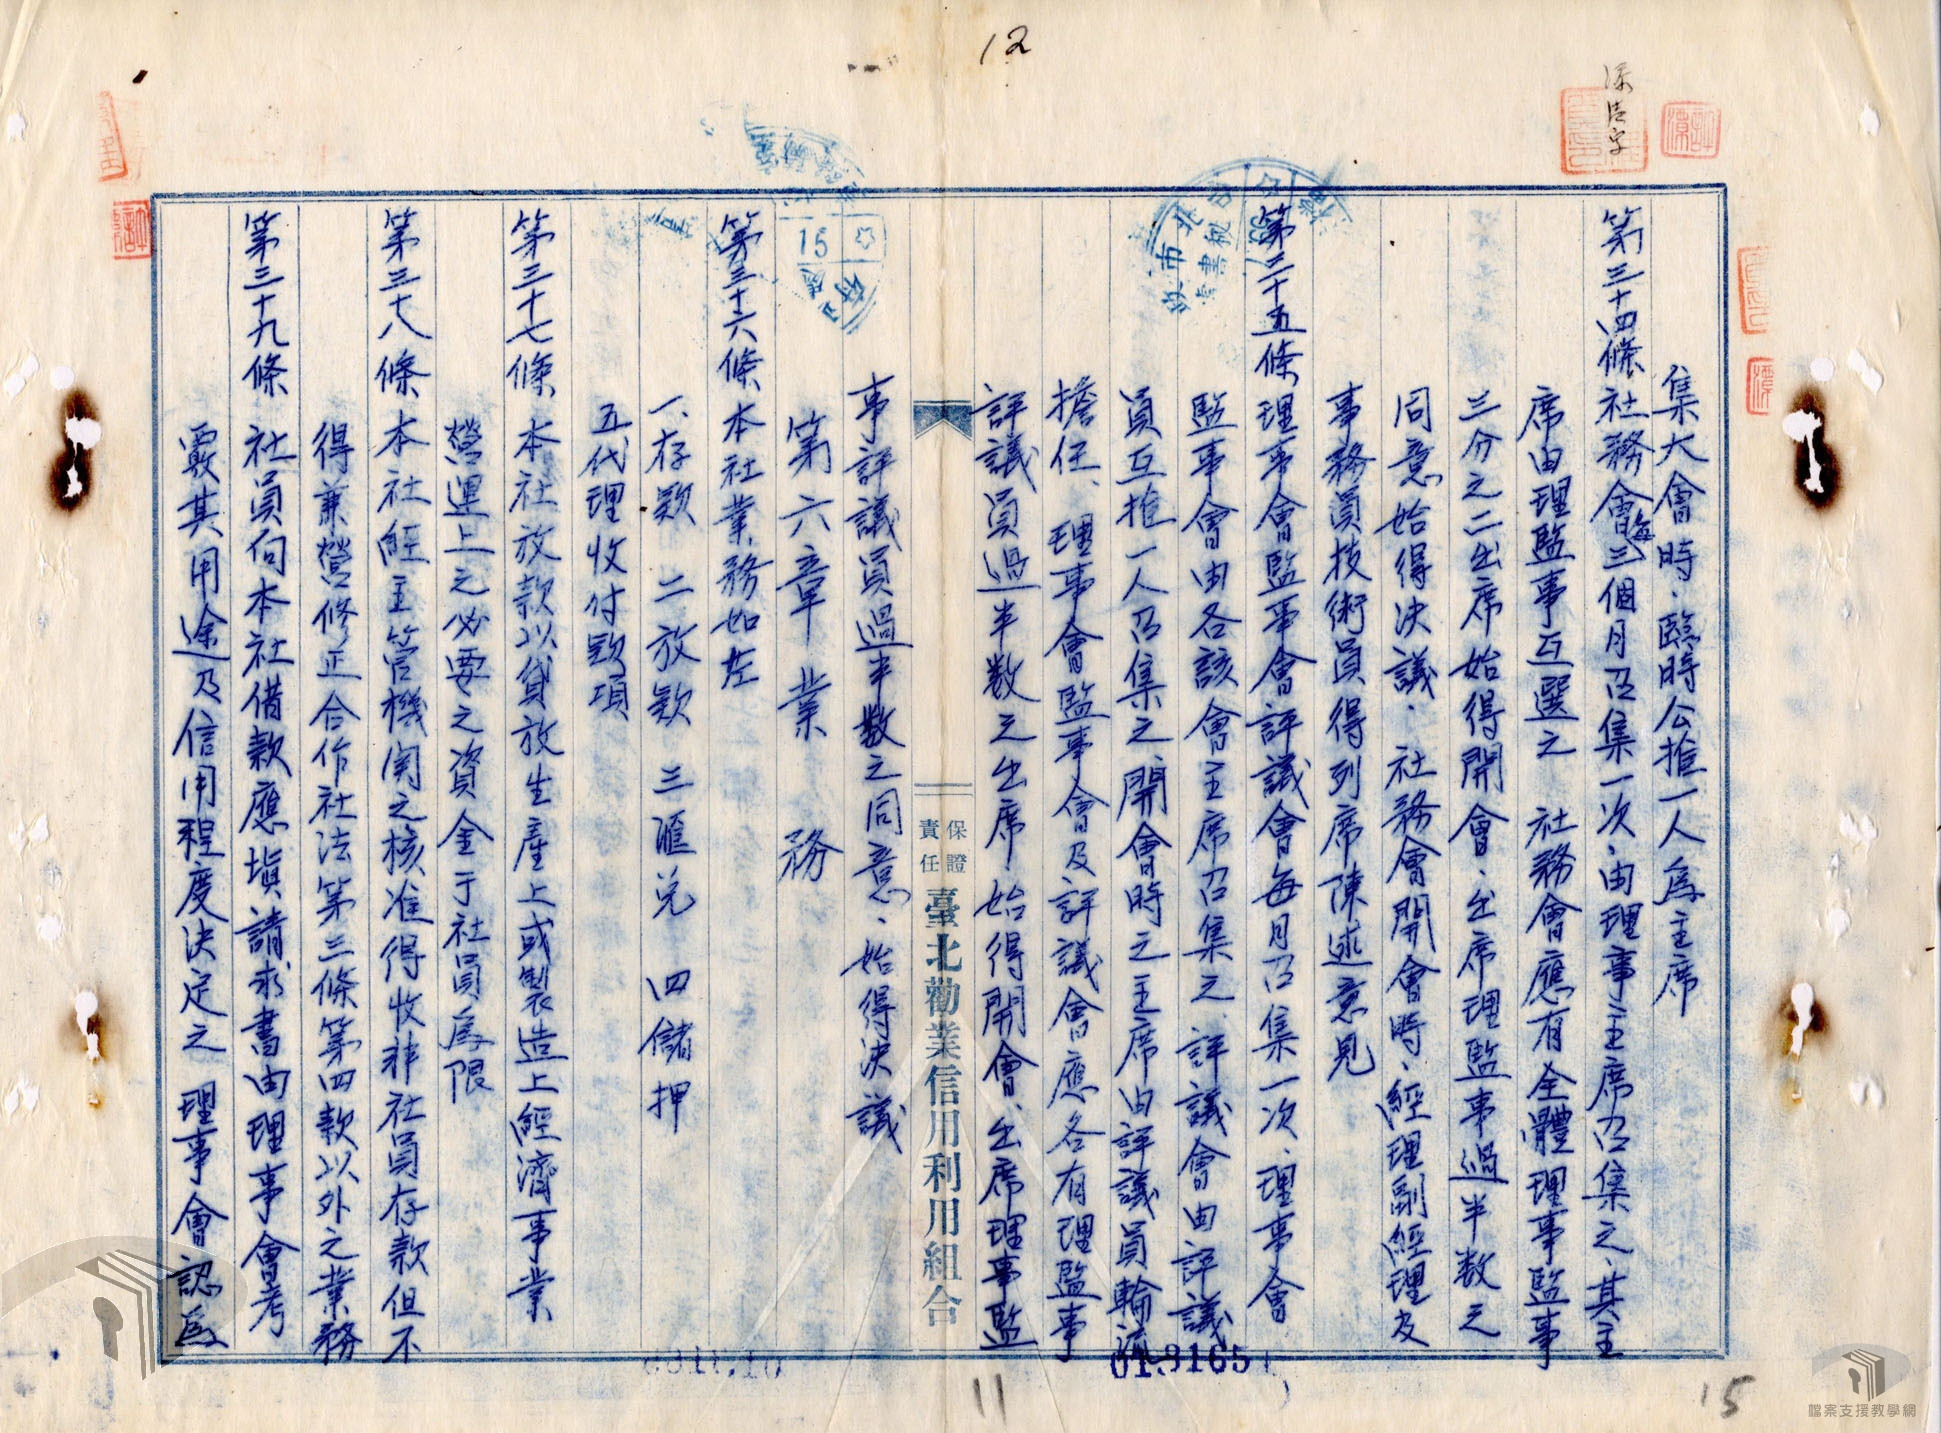 12
添壱字
集大會時、臨時公推一人為主席
第三十四條 社務會每三個月召集一次、由理事主席召集之、其主
席由理監事互選之 社務會應有全體理事監事
三分之二出席始得開會、出席理監事過半數之
同意始得決議、社務會開會時、經理副經理及
事務員技術員得列席陳述意見
第三十五條 理事會監事會評議會每月召集一次、理事會
監事會由各該會主席召集之、評議會由評議
員互推一人召集之、開會時之主席由評議員輪流
擔任、理事會監事會及評議會應各有理監事
評議員過半數之出席、始得開會、出席理事監
保證
責任
臺北勸業信用利用組合
事評議員過半數之同意、始得決議
第六章 業 務
第三十六條 本社業務如左
一、存款 二放款 三滙兌 四儲押
五代理收付款項
第三十七條 本社放款以貸放生產上或製造上經濟事業
營運上之必要之資金于社員為限
第三十八條 本社經主管機関之核准得收非社員存款但不
得兼營修正合作社法第三條第四款以外之業務
第三十九條 社員向本社借款應填請求書由理事會考
覈其用途及信用程度決定之 理事會認為
台北市
秘書
15
019165
11
15
檔案支援教學網